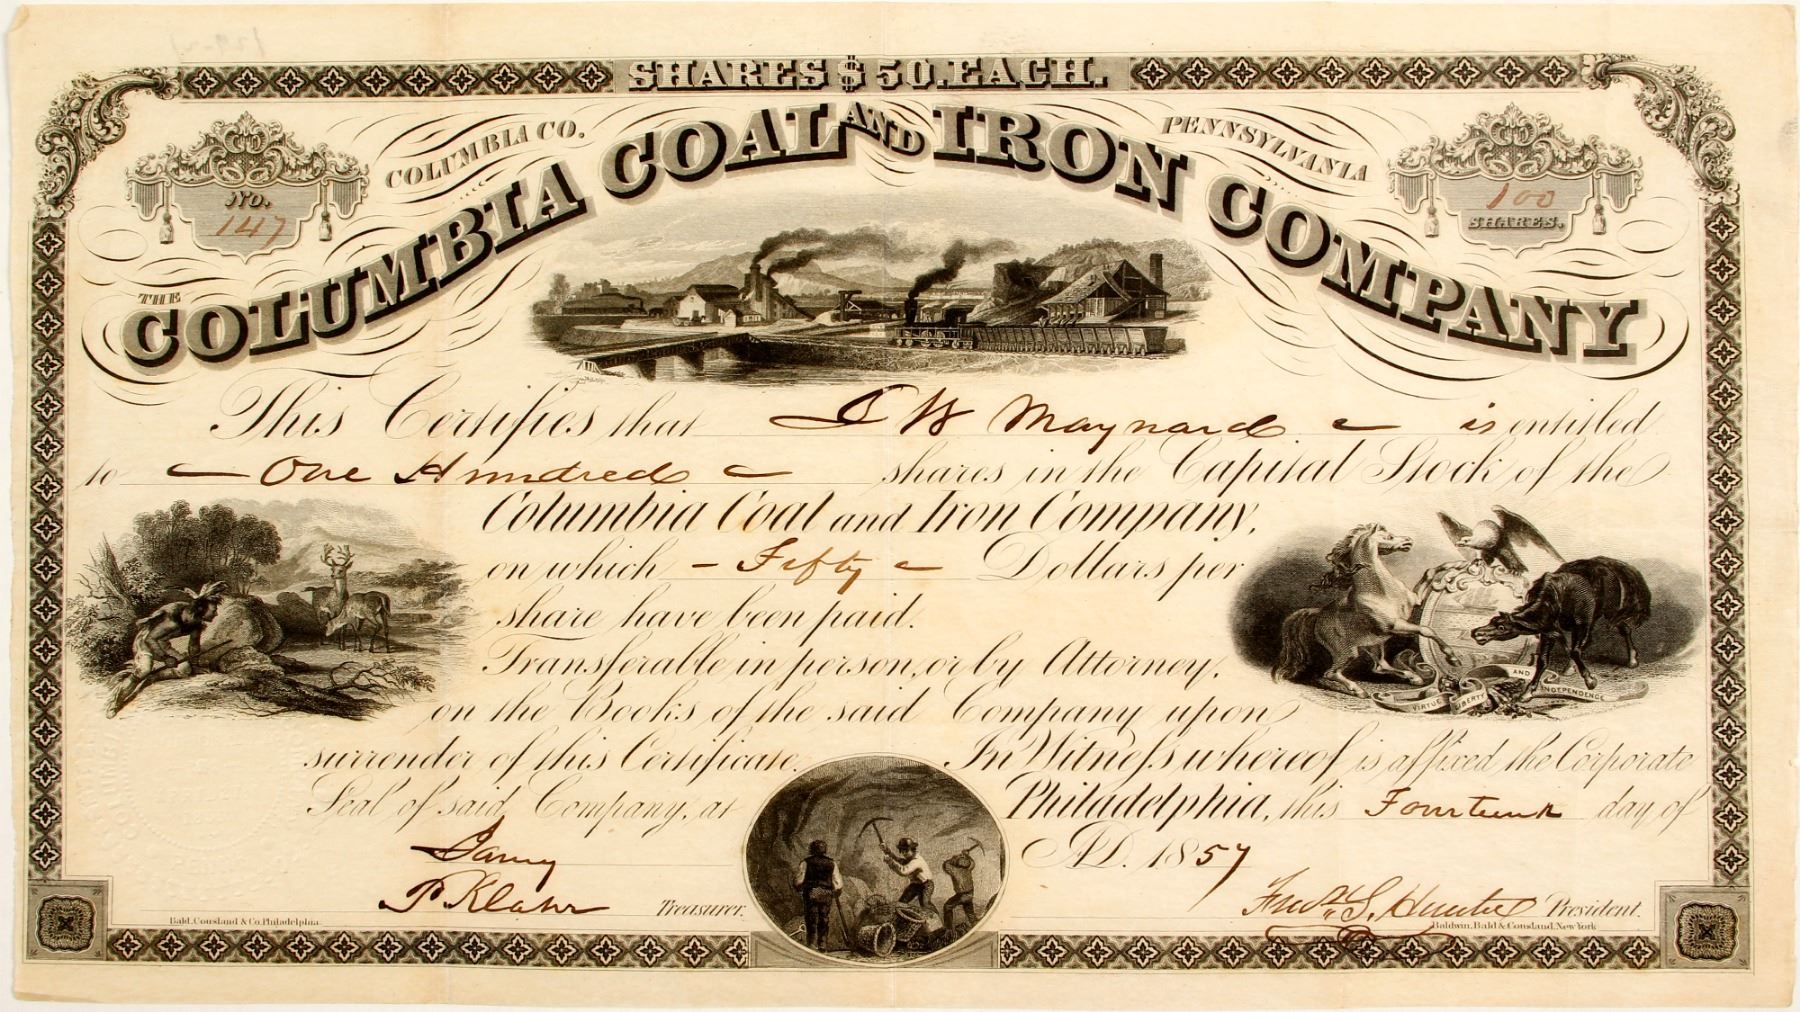 SHARES $50. EACH.
COLUMBIA CO. PENNSYLVANIA
No.
147
100
SHARES.
THE
COLUMBIA COAL AND IRON COMPANY
This Certifies that W Maynard is entitled
to One Hundred shares in the Capital Stock of the
Columbia Coal and Iron Company,
on which - Fifty Dollars per
share have been paid.
Transferable in person, or by Attorney,
on the Books of the said Company upon
surrender of this Certificate. In Witness whereof is affixed the Corporate
Seal of said Company, at Philadelphia, this Fourteenth day of
January A.D. 1857
VIRTUE LIBERTY AND INDEPENDENCE
P Klahr Treasurer.
S. Hunter President.
Bald, Cousland & Co. Philadelphia
Baldwin, Bald & Cousland, New York